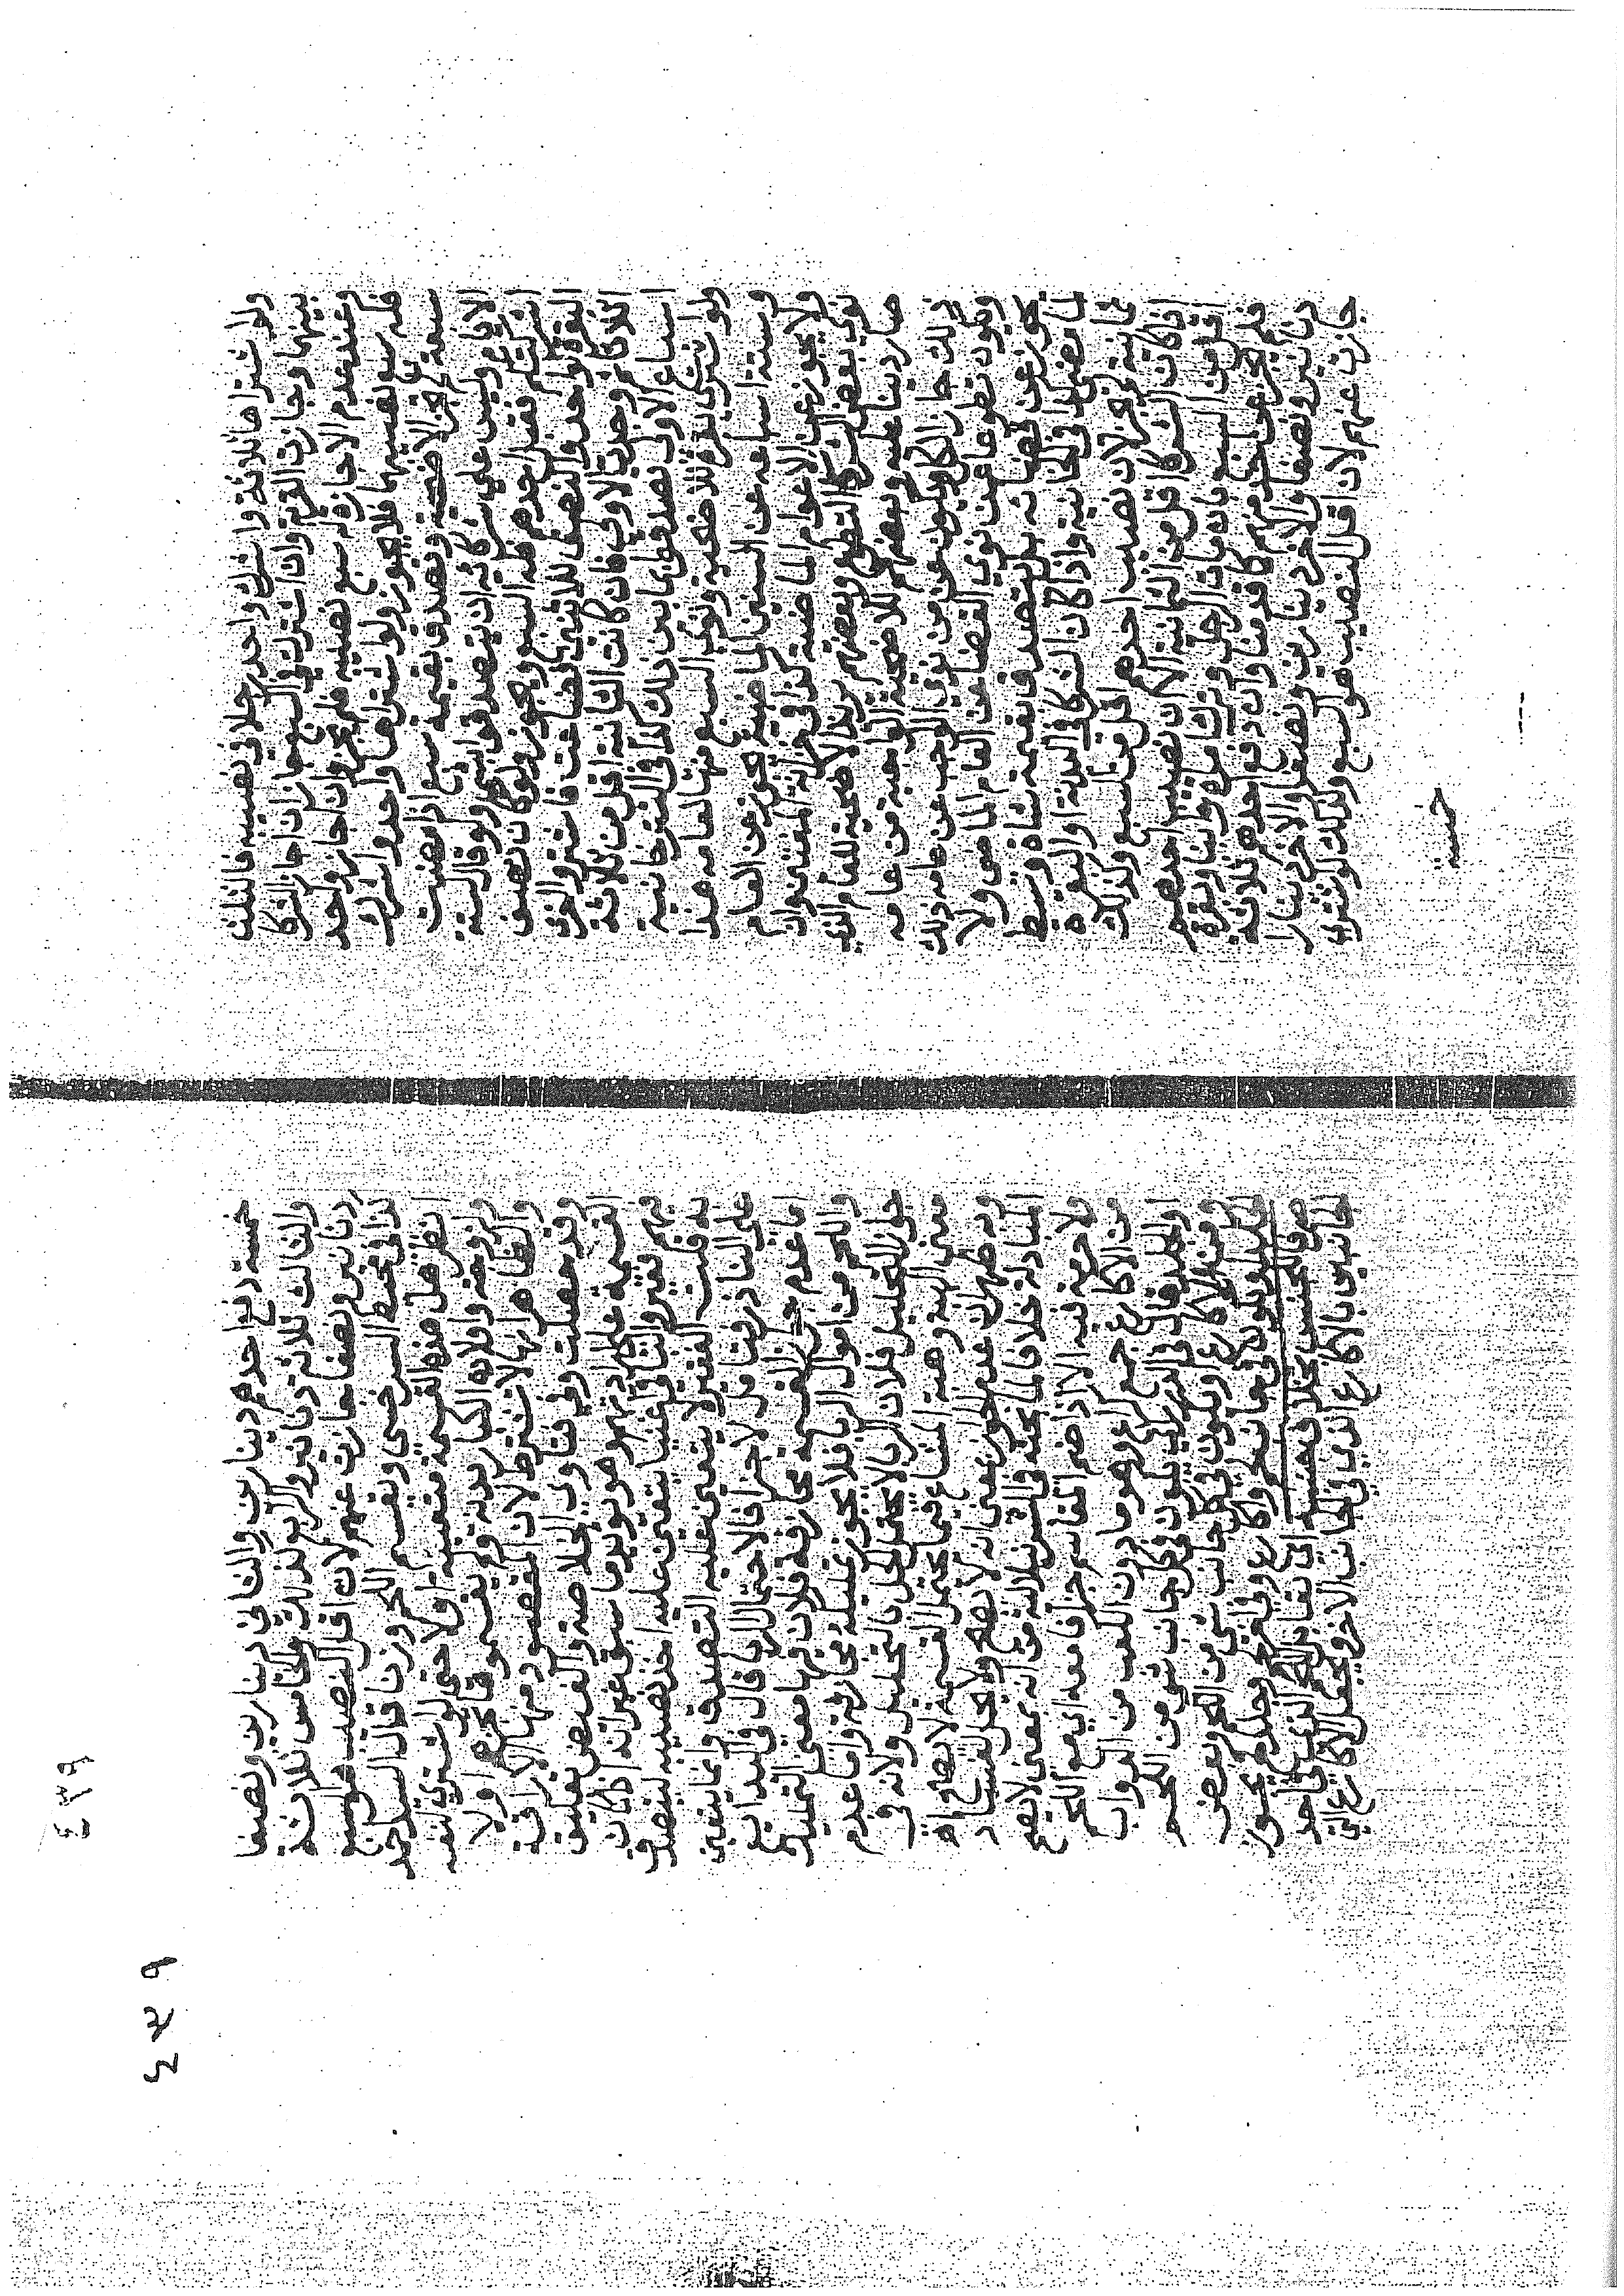 ولو شتراها ثلاثة واشرك واحد رجلا في نصيبه فالثلث
بينهما وجازت القربة وان اشترك في السبع جاز ان اجاز الشركا
وعند عدم الاجازة له سبع نصيبه فلم يجز وان اجاز واحد
فله سبع نصيبهما فلا يجوز ولو شتراها واحد واشرك
سبعة لم تجز الاضحية وتصدق بقيمة سبع اذا مضت
الايام وليس على شركائه ان يتصدقوا بشي ولو قال لستة
اشركتكم فقبل احدهم فله السبع ويجوز ولو كان نصف
البقرة لواحد والنصف للاثنين فضاعت فاشتروا اخرى
اثلاثا ثم وجدت الاولى فان كانت الثانية اقل من ثلاثة
اسباع الاولى تصدقوا بما بين ذلك كذا في التترخانية
ولو شترى بقرة للاضحية ونوى السبع منها لعامه هذا
وستة اسباعه عن السنين الماضية يجوز عن العام
ولا يجوز عن الاعوام الماضية كذا في خزانة المفتين وان
نوى بعض الشركا التطوع وبعضهم يريد الاضحية للعام الذي
صار دينا عليه وبعضهم للاضحية الواجبة من عامه
ذلك جاز الكل ويكون عن من نوى الواجب عن عامه ذلك
ويكون تطوعا عمن نوى القضا من العام الماضي ولا
يجوز عن قضائه بل يتصدق بقيمة شاة وسط
لما مضى كذا في الخانية واذا كان الشركا في البدنة او البقرة
ثمانية لم تجز لان نصيب احدهم اقل من السبع وكذلك
اذا كان الشركا اقل من الثمانية الا ان نصيب احدهم
اقل من السبع بان مات الرجل وترك امراة وابنا وبقرة
فلم تجز عن احدهم كما قدمنا وان دفع احدهم ثلاثة
دنانير ونصفا والاخر دينارين ونصفا والاخر دينارا
جازت عنهم لان اقل النصيب هو السبع وكذلك لو شترى
خمسة
٤٣٩
٤٣٩
خمسة دفع احدهم دينارين والثاني دينارين ونصفا
والثالث ثلاثة دنانير والرابع كذلك والخامس ثلاثة
دنانير ونصفا جازت عنهم لان اقل النصيب هو السبع
كذا في محيط السرخسي ويقسم اللحم وزنا قال السيد احمد
انظر هل هذه القسمة متعينة او لا حتى لو شترى لنفسه
وزوجته واولاده الكبار بدنة ولم يقسموها تجزيهم او لا
والظاهر انها لا تشترط لان المقصود منها الاراقة
وقد حصلت وفي فتاوى الخلاصة والفيض تعليق
القسمة على ارادتهم وهو يويد ما سبق غير انه اذا كان
فيهم فقير والباقي اغنيا يتعين عليه اخذ نصيبه ليتصدق
به قلت الفقير لا يتعين عليه التصدق وانما يتعين
على الناذر فتامل لا جزافا لاحتمال الربا قال في البدايع
اما عدم جواز القسمة مجازفة فلان فيها معنى التمليك
واللحم من اموال الربا فلا يجوز تمليكه مجازفة واما عدم
جواز التحليل فلان الربا لا يحتمل الحل بالتحليل ولانه في
معنى الهبة وهبة المشاع فيما يحتمل القسمة لا تصح اه
وبه ظهر ان عدم الجواز بمعنى انه لا يصح ولا يحل لفساد
المبادلة خلافا لما بحثه في الشرنبلالية من انه بمعنى لا يصح
ولا حرمة فيه الا اذا ضم التقاسم جزافا معه اي مع اللحم
من الاكارع جمع كراع وهو ما دون الكعب من الدواب
او الجلد قال في الدرر بان يكون في كل جانب شي من اللحم
وشي من الاكارع او يكون في كل جانب شي من اللحم وبعض
الجلد او يكون في جانب لحم واكارع وفي اخر لحم وجلد فحينئذ يجوز
صرفا للجنس بخلاف جنسه اي تقابل اللحم الذي في احد
الجانبين بالاكارع الذي في الجانب الاخر ويجعل الاكارع الذي